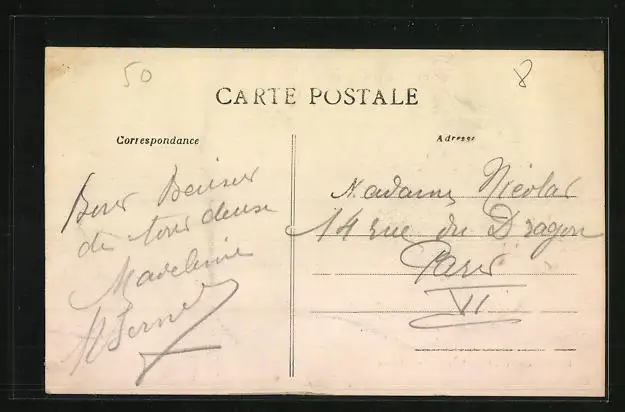 50
8
CARTE POSTALE
Correspondance
Adresse
Bons Baisers
de tous deux
Madeleine
Madame Nicolas
14 rue du Dragon
Paris
VI